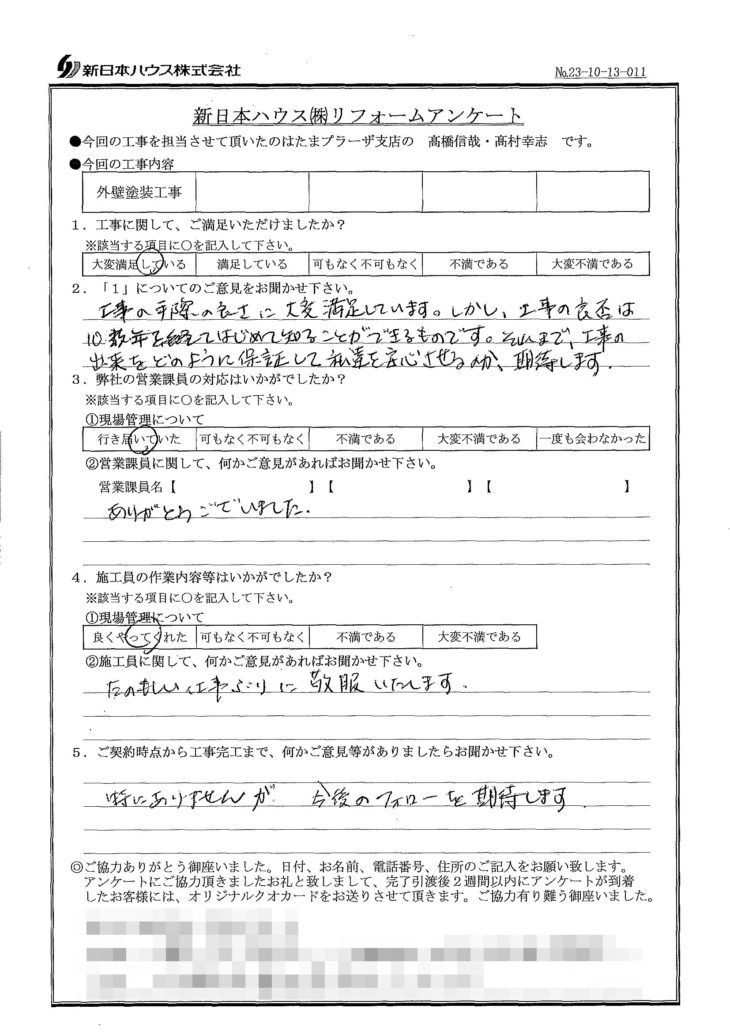 新日本ハウス株式会社
№23-10-13-011
新日本ハウス㈱リフォームアンケート
●今回の工事を担当させて頂いたのはたまプラーザ支店の　髙橋信哉・髙村幸志　です。
●今回の工事内容
外壁塗装工事
1．工事に関して、ご満足いただけましたか？
※該当する項目に○を記入して下さい。
大変満足している　満足している　可もなく不可もなく　不満である　大変不満である
2．「1」についてのご意見をお聞かせ下さい。
工事の手際の良さに大変満足しています。しかし、工事の良否は
10数年を経てはじめて知ることができるものです。それまで、工事の
出来をどのように保証して私達を安心させるのか、期待します.
3．弊社の営業課員の対応はいかがでしたか？
※該当する項目に○を記入して下さい。
①現場管理について
行き届いていた　可もなく不可もなく　不満である　大変不満である　一度も会わなかった
②営業課員に関して、何かご意見があればお聞かせ下さい。
営業課員名【　　　】【　　　】【　　　】
ありがとうございました.
4．施工員の作業内容等はいかがでしたか？
※該当する項目に○を記入して下さい。
①現場管理について
良くやってくれた　可もなく不可もなく　不満である　大変不満である
②施工員に関して、何かご意見があればお聞かせ下さい。
たのもしい仕事ぶりに敬服いたします.
5．ご契約時点から工事完工まで、何かご意見等がありましたらお聞かせ下さい。
特にありませんが　今後のフォローを期待します.
◎ご協力ありがとう御座いました。日付、お名前、電話番号、住所のご記入をお願い致します。
アンケートにご協力頂きましたお礼と致しまして、完了引渡後2週間以内にアンケートが到着
したお客様には、オリジナルクオカードをお送りさせて頂きます。ご協力有り難う御座いました。